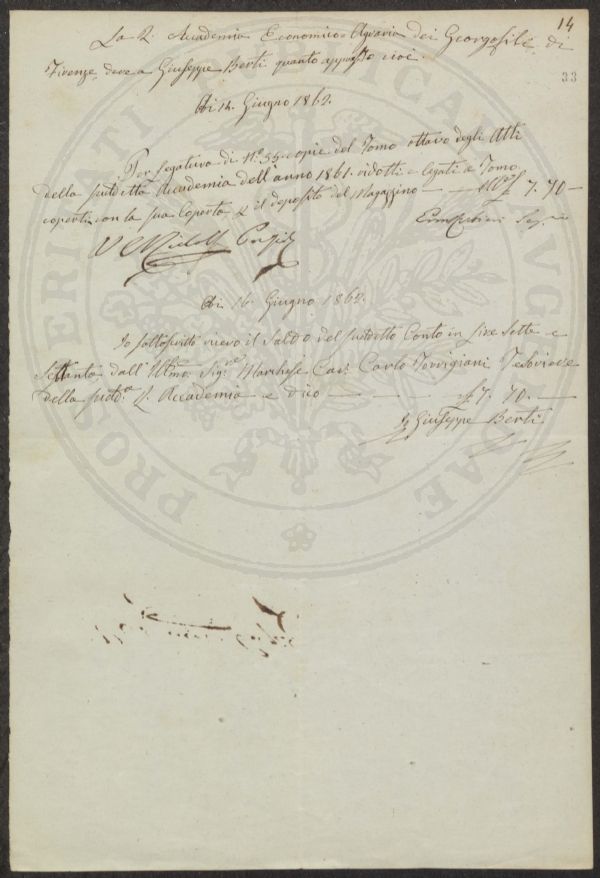 14
La R. Accademia Economico-Agraria dei Georgofili di
33
Firenze, deve a Giuseppe Berti quanto appresso cioè.
Adi 14. Giugno 1862.
Per legatura di N.o 55 copie del Tomo ottavo degli Atti
della suddetta Accademia dell'anno 1861. ridotti e legati a Tomo
coperti con la sua Coperta, e il deposito del Magazzino — £ 7. 70 —
V Ridolfi
Adi 16. Giugno 1862.
Io sottoscritto ricevo il Saldo del suddetto Conto in lire Sette e
Settanta dall'Illmo. Sig.re Marchese Cav. Carlo Torrigiani Tesoriere
della sudd.a R. Accademia e dico — — — £ 7. 70. —
Giuseppe Berti
PROSPERITATI PUBLICAE AUGENDAE